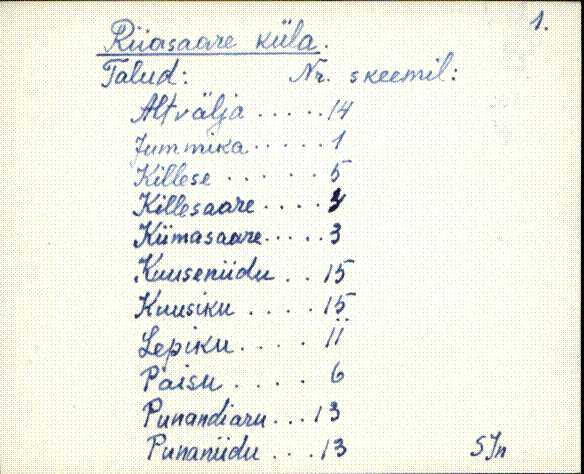 1.
Riiasaare küla.
Talud: Nr. skeemil:
Altvälja ..... 14
Jummika ..... 1
Killese ...... 5
Killesaare ....
Kiimasaare ..... 3
Kuuseniidu .. 15
Kuusiku .... 15
Lepiku .... 11
Paisu .... 6
Punandiaru ... 13
Punaniidu ... 13
SJn